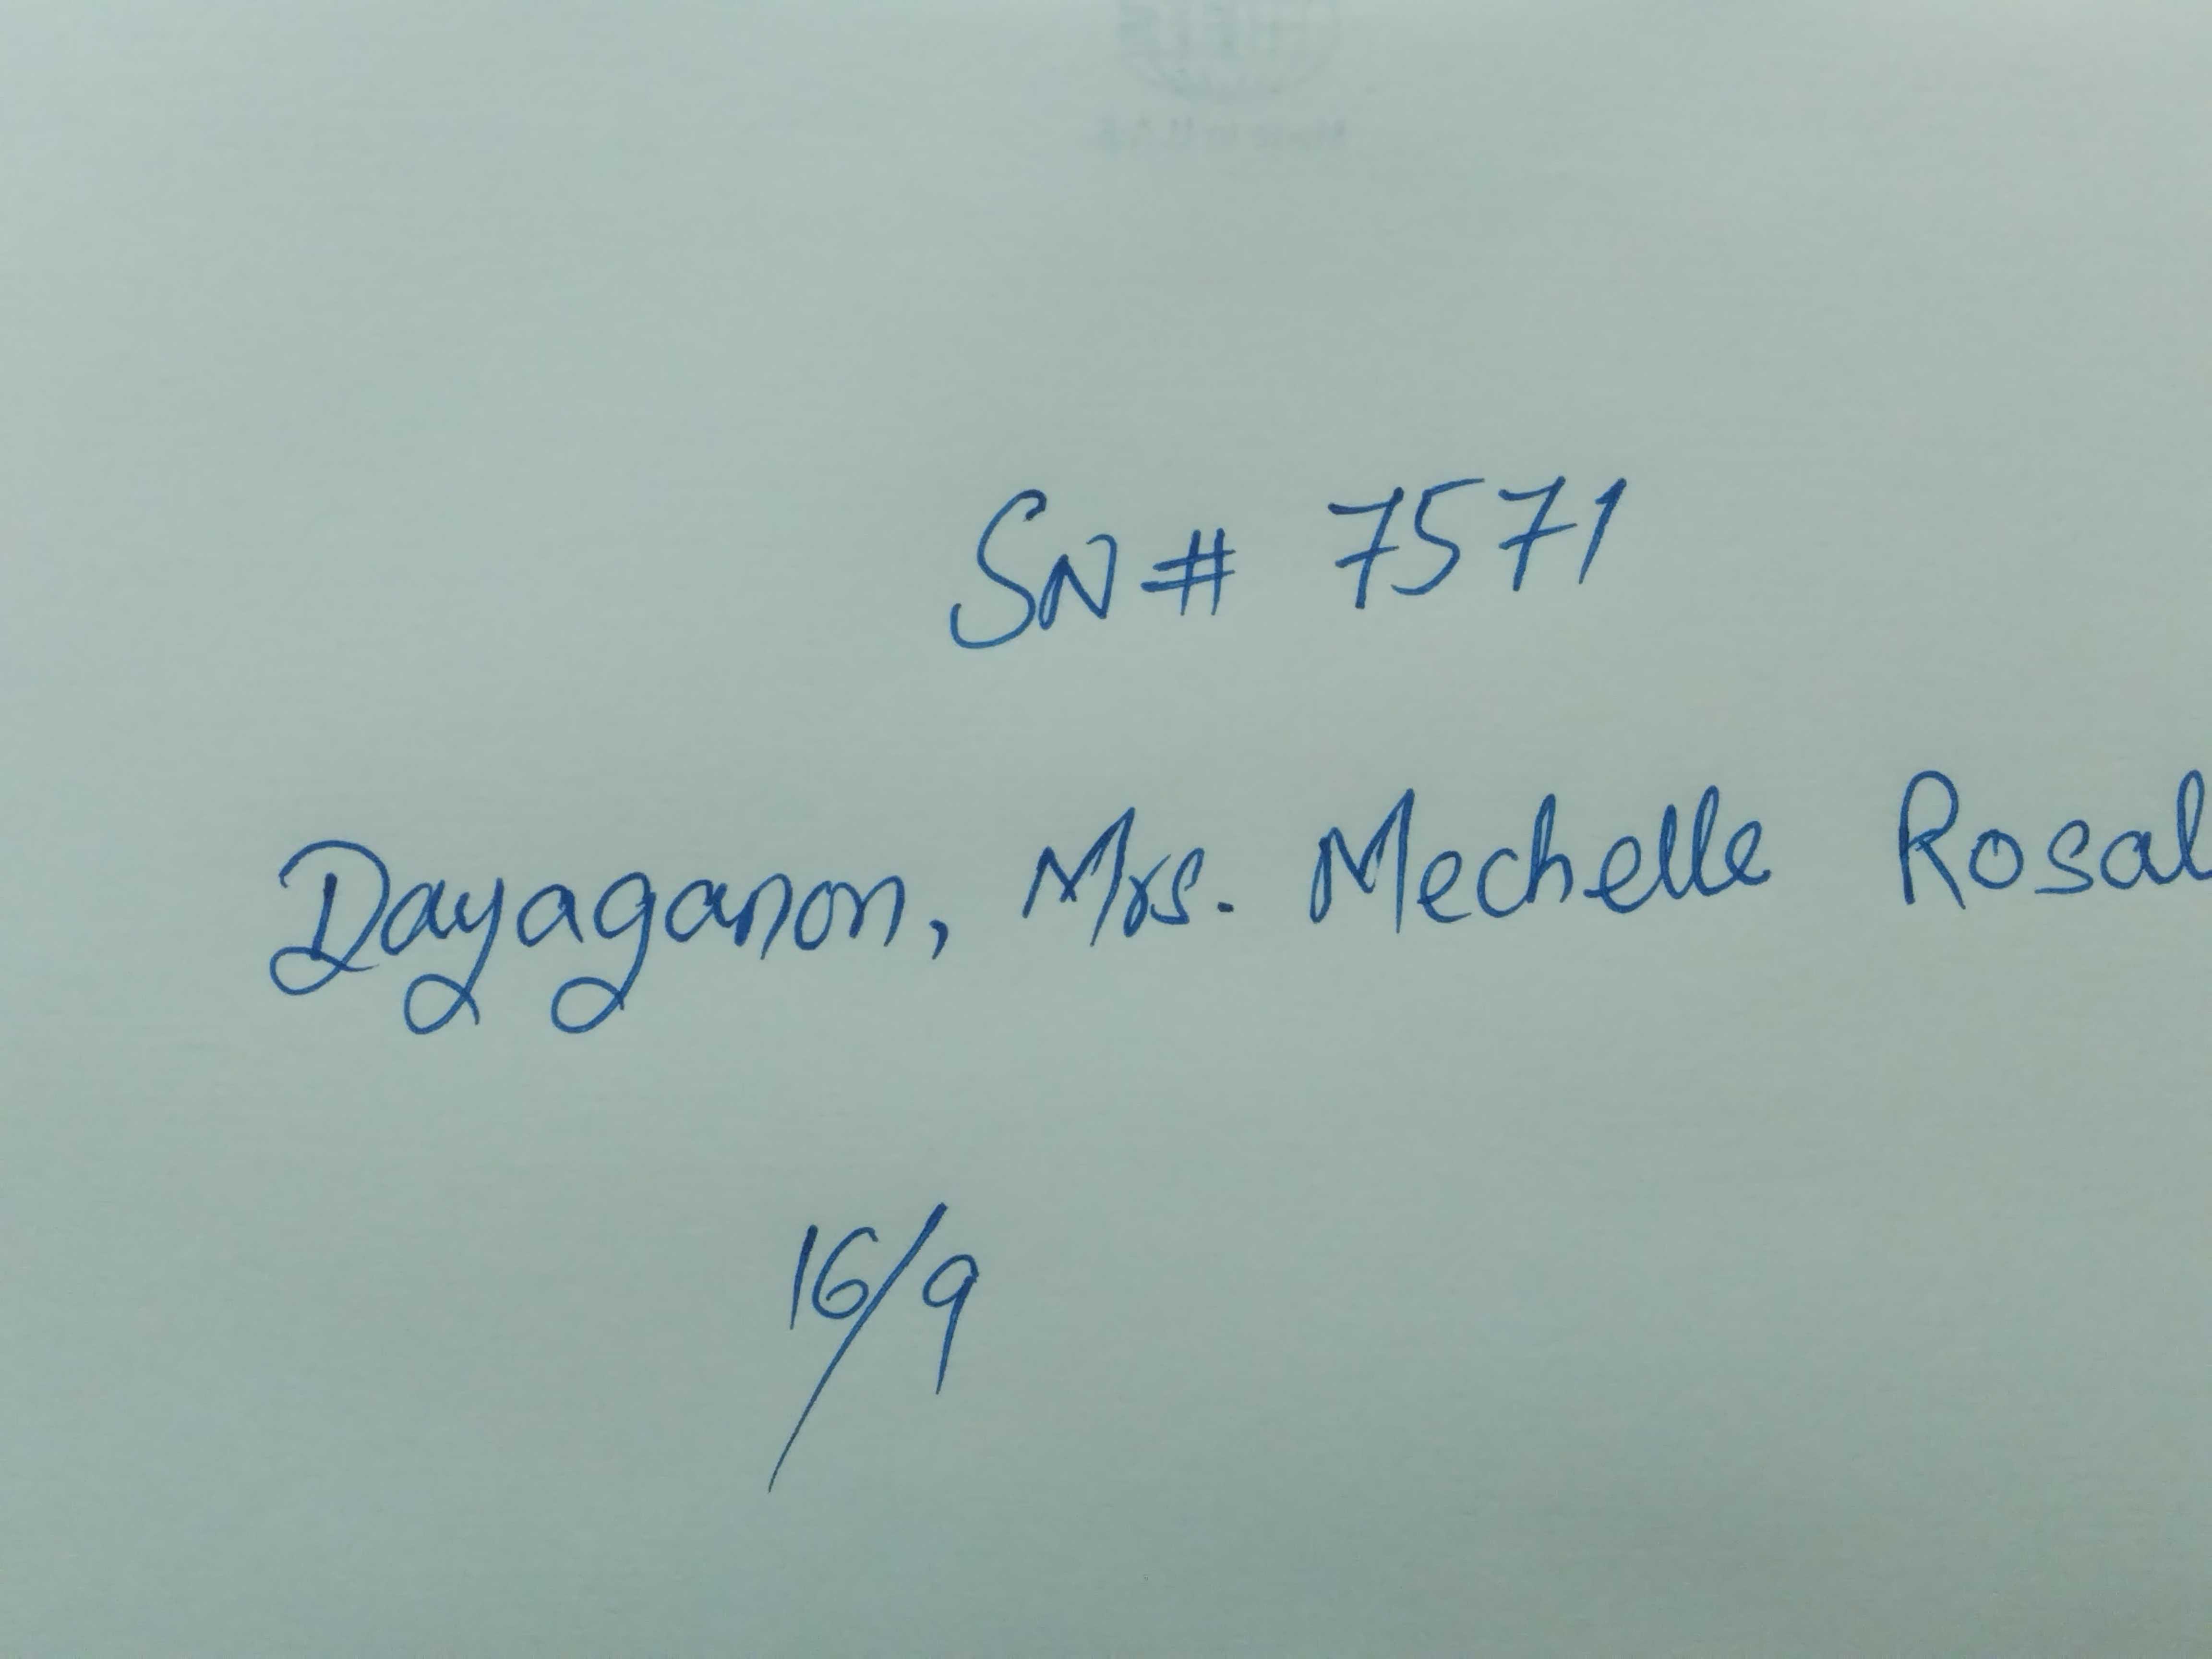 SN# 7571
Dayaganon, Mrs. Mechelle Rosal
16/9